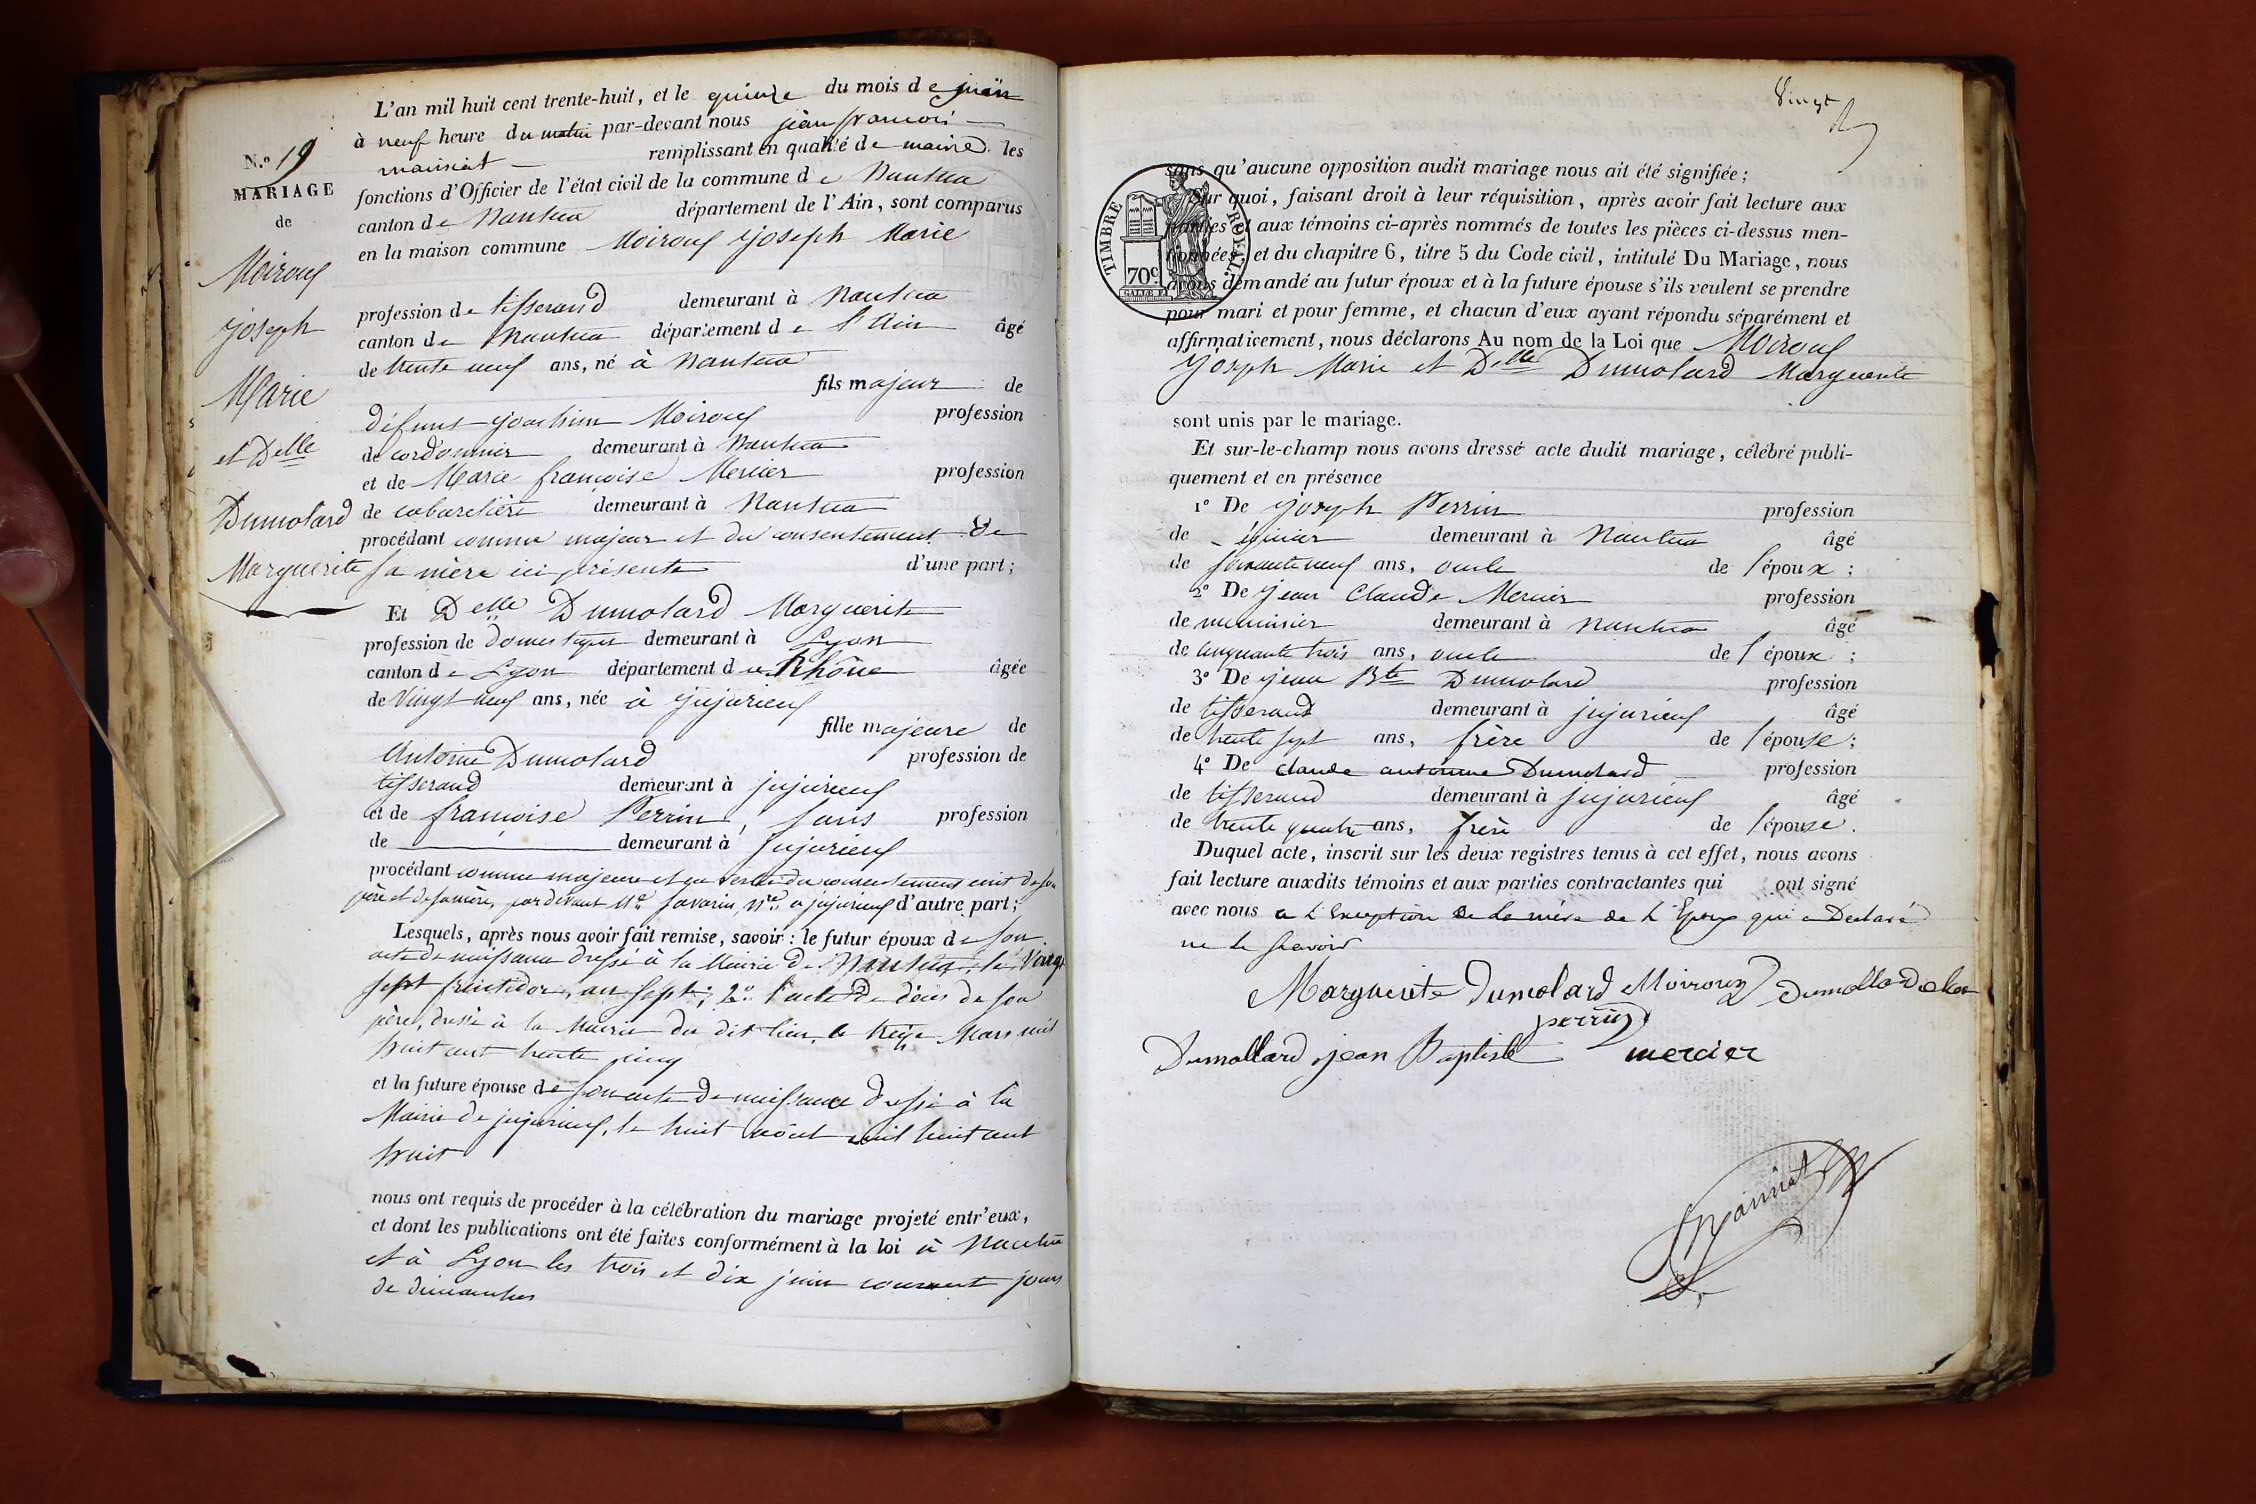 L'an mil huit cent trente-huit, et le quinze du mois de juin
à neuf heure du matin par-devant nous jean françois
mainiat remplissant en qualité de maire les
fonctions d'Officier de l'état civil de la commune de Nantua
canton de Nantua département de l'Ain, sont comparus
en la maison commune Moiroux joseph Marie
profession de tisserand demeurant à Nantua
canton de Nantua département de l'Ain âgé
de trente neuf ans, né à Nantua
fils majeur de
défunt joachim Moiroux profession
de cordonnier demeurant à Nantua
et de Marie françoise Mercier profession
de cabaretière demeurant à Nantua
procédant comme majeur et du consentement de
sa mère ici présente d'une part;
Et Delle Dumolard Marguerite
profession de domestique demeurant à Lyon
canton de Lyon département du Rhône âgée
de vingt neuf ans, née à jujurieux
fille majeure de
Antoine Dumolard profession de
tisserand demeurant à jujurieux
et de françoise Perrin, sans profession
de demeurant à jujurieux
procédant comme majeure et en vertu du consentement de son
père et de sa mère, par devant Me savarin, Nre a jujurieux d'autre part;
Lesquels, après nous avoir fait remise, savoir: le futur époux de son
acte de naissance dressé à la Mairie de Nantua, le vingt
sept fructidor, an sept; 2° l'acte de décès de son
père, dressé à la Mairie du dit lieu, le treize Mars mil
huit cent trente cinq
et la future épouse de son acte de naissance dressé à la
Mairie de jujurieux, le huit août mil huit cent
huit
nous ont requis de procéder à la célébration du mariage projeté entr'eux,
et dont les publications ont été faites conformément à la loi à Nantua
et à Lyon les trois et dix juin courant jours
de dimanches
N.o 19
MARIAGE
de
Moiroux
joseph
Marie
et Delle
Dumolard
Marguerite
Vingt
TIMBRE ROYAL
70c
sans qu'aucune opposition audit mariage nous ait été signifiée;
Sur quoi, faisant droit à leur réquisition, après avoir fait lecture aux
parties et aux témoins ci-après nommés de toutes les pièces ci-dessus men-
tionnées, et du chapitre 6, titre 5 du Code civil, intitulé Du Mariage, nous
avons demandé au futur époux et à la future épouse s'ils veulent se prendre
pour mari et pour femme, et chacun d'eux ayant répondu séparément et
affirmativement, nous déclarons Au nom de la Loi que Moiroux
joseph Marie et Delle Dumolard Marguerite
sont unis par le mariage.
Et sur-le-champ nous avons dressé acte dudit mariage, célébré publi-
quement et en présence
1° De joseph Perrin profession
de épicier demeurant à Nantua âgé
de soixante neuf ans, oncle de l'époux;
2° De jean Claude Mercier profession
de menuisier demeurant à Nantua âgé
de cinquante trois ans, oncle de l'époux;
3° De jean Bte Dumolard profession
de tisserand demeurant à jujurieux âgé
de trente sept ans, frère de l'épouse;
4° De claude antoinne Dumolard profession
de tisserand demeurant à jujurieux âgé
de trente quatre ans, frère de l'épouse.
Duquel acte, inscrit sur les deux registres tenus à cet effet, nous avons
fait lecture auxdits témoins et aux parties contractantes qui ont signé
avec nous a L'Exception de la mère de L'Epoux qui a Declaré
ne le scavoir
Marguerite Dumolard Moiroux
perrin
Dumollard jean Baptiste mercier
Mainiat